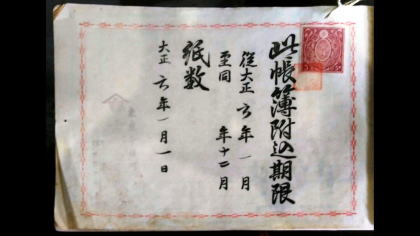 此帳簿附込期限
従大正六年一月
至同年十二月
紙数
大正六年一月一日